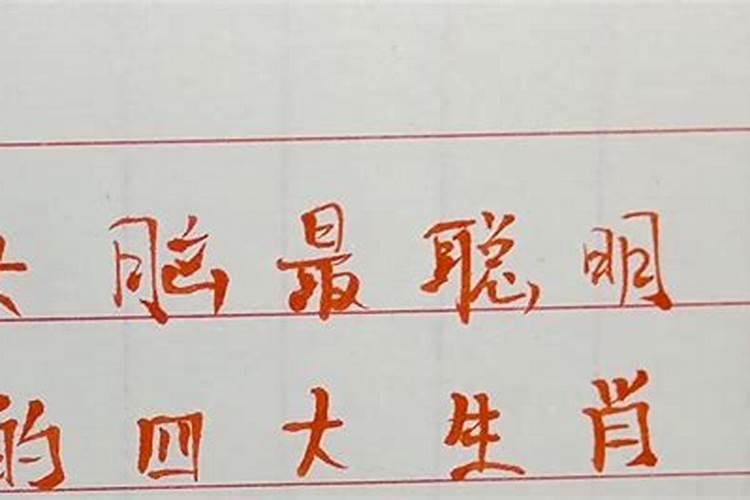 头脑最聪明
的四大生肖